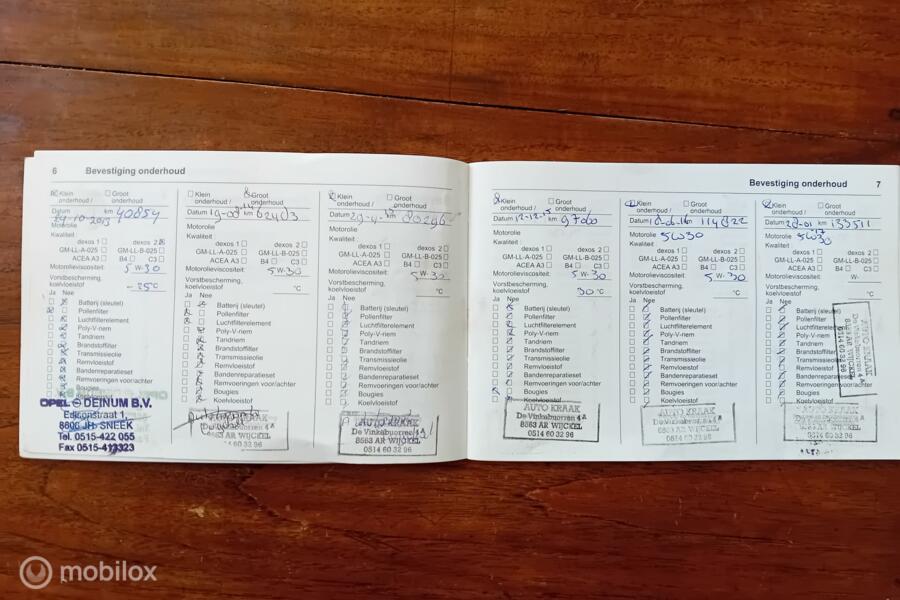 6 Bevestiging onderhoud
Klein onderhoud / Groot onderhoud
Datum 14-10-2013 km 40854
Motorolie
Kwaliteit
dexos 1 dexos 2
GM-LL-A-025 GM-LL-B-025
ACEA A3 B4 C3
Motorolieviscositeit: 5 W-30
Vorstbescherming,
koelvloeistof -25°C
Ja Nee
Batterij (sleutel)
Pollenfilter
Luchtfilterelement
Poly-V-riem
Tandriem
Brandstoffilter
Transmissieolie
Remvloeistof
Bandenreparatieset
Remvoeringen voor/achter
Bougies
OPEL DEINUM B.V.
Edisonstraat 1
8606 JH SNEEK
Tel. 0515-422 055
Fax 0515-413323
Klein onderhoud / Groot onderhoud
Datum km 62403
Motorolie
Kwaliteit
dexos 1 dexos 2
GM-LL-A-025 GM-LL-B-025
ACEA A3 B4 C3
Motorolieviscositeit: 5 W-30
Vorstbescherming,
koelvloeistof °C
Ja Nee
Batterij (sleutel)
Pollenfilter
Luchtfilterelement
Poly-V-riem
Tandriem
Brandstoffilter
Transmissieolie
Remvloeistof
Bandenreparatieset
Remvoeringen voor/achter
Bougies
Koelvloeistof
De Vinkebuorren
8563 AR WIJCKEL
0514 60 32 96
Klein onderhoud / Groot onderhoud
Datum 29-4- km 80296
Motorolie
Kwaliteit
dexos 1 dexos 2
GM-LL-A-025 GM-LL-B-025
ACEA A3 B4 C3
Motorolieviscositeit: 5 W-30
Vorstbescherming,
koelvloeistof °C
Ja Nee
Batterij (sleutel)
Pollenfilter
Luchtfilterelement
Poly-V-riem
Tandriem
Brandstoffilter
Transmissieolie
Remvloeistof
Bandenreparatieset
Remvoeringen voor/achter
Bougies
Koelvloeistof
AUTO KRAAK
De Vinkebuorren
8563 AR WIJCKEL
0514 60 32 96
Bevestiging onderhoud 7
Klein onderhoud / Groot onderhoud
Datum 17-12-15 km 97060
Motorolie
Kwaliteit
dexos 1 dexos 2
GM-LL-A-025 GM-LL-B-025
ACEA A3 B4 C3
Motorolieviscositeit: 5 W-30
Vorstbescherming,
koelvloeistof 30 °C
Ja Nee
Batterij (sleutel)
Pollenfilter
Luchtfilterelement
Poly-V-riem
Tandriem
Brandstoffilter
Transmissieolie
Remvloeistof
Bandenreparatieset
Remvoeringen voor/achter
Bougies
Koelvloeistof
AUTO KRAAK
De Vinkebuorren
8563 AR WIJCKEL
0514 60 32 96
Klein onderhoud / Groot onderhoud
Datum km
Motorolie 5W30
Kwaliteit
dexos 1 dexos 2
GM-LL-A-025 GM-LL-B-025
ACEA A3 B4 C3
Motorolieviscositeit: 5 W-30
Vorstbescherming,
koelvloeistof °C
Ja Nee
Batterij (sleutel)
Pollenfilter
Luchtfilterelement
Poly-V-riem
Tandriem
Brandstoffilter
Transmissieolie
Remvloeistof
Bandenreparatieset
Remvoeringen voor/achter
Bougies
Koelvloeistof
AUTO KRAAK
De Vinkebuorren
8563 AR WIJCKEL
0514 60 32 96
Klein onderhoud / Groot onderhoud
Datum 20-01-17 km 133511
Motorolie 5W30
Kwaliteit
dexos 1 dexos 2
GM-LL-A-025 GM-LL-B-025
ACEA A3 B4 C3
Motorolieviscositeit: W-
Vorstbescherming,
koelvloeistof °C
Ja Nee
Batterij (sleutel)
Pollenfilter
Luchtfilterelement
Poly-V-riem
Tandriem
Brandstoffilter
Transmissieolie
Remvloeistof
Bandenreparatieset
Remvoeringen voor/achter
Bougies
Koelvloeistof
mobilox